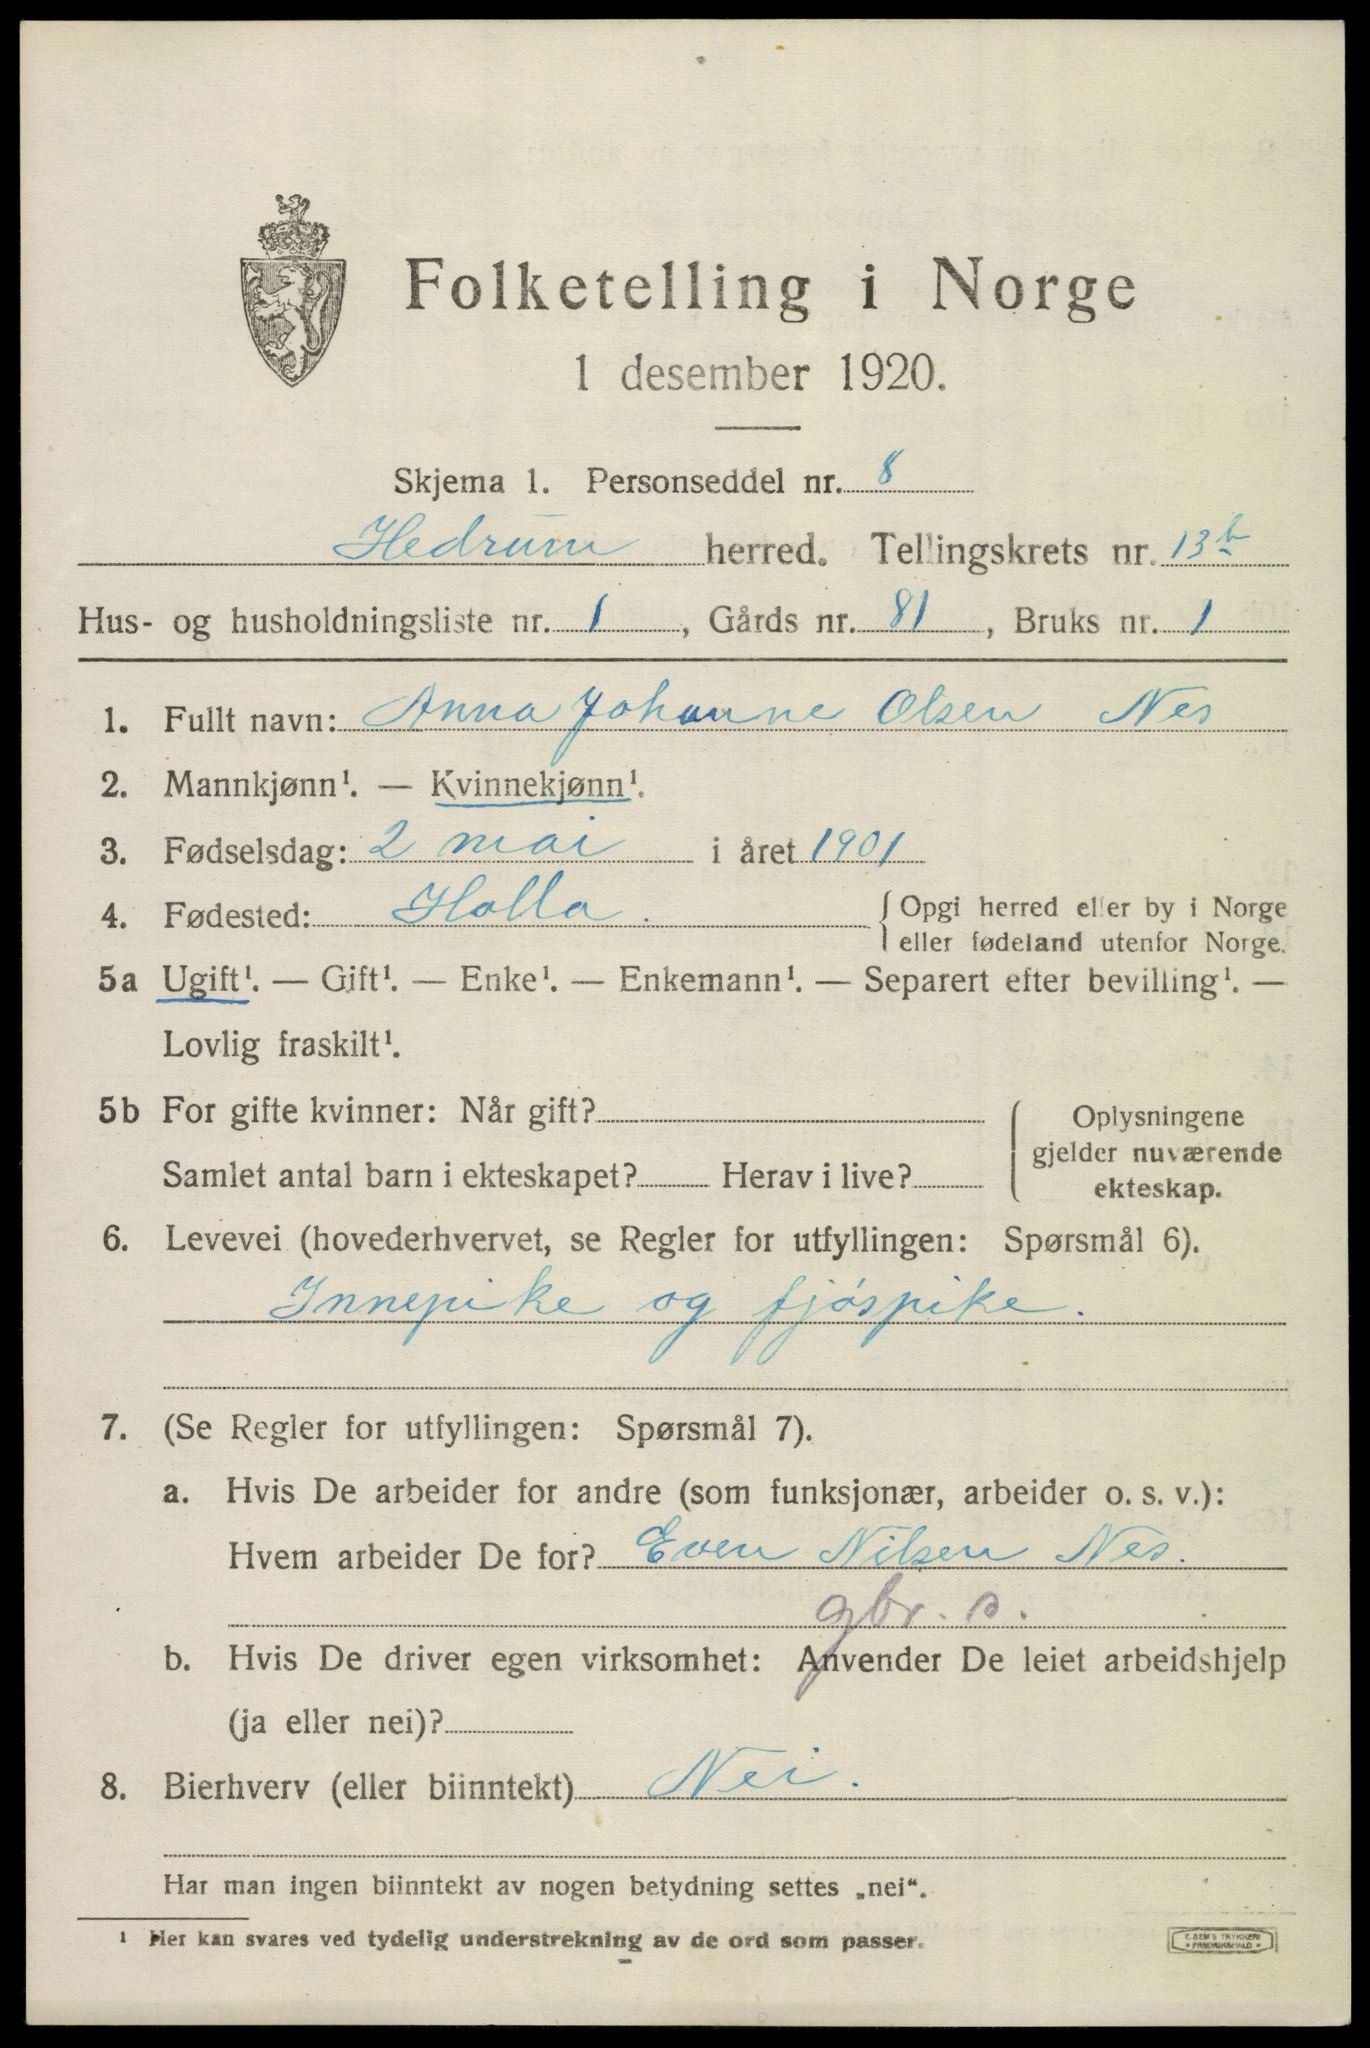 Folketelling i Norge
1 desember 1920.
Skjema 1. Personseddel nr. 8
Hedrum herred. Tellingskrets nr. 13b
Hus- og husholdningsliste nr. 1, Gårds nr. 81, Bruks nr. 1
1. Fullt navn: Anna Johanne Olsen Nes
2. Mannkjønn¹. — Kvinnekjønn¹.
3. Fødselsdag: 2 mai i året 1901
4. Fødested: Holla. { Opgi herred eller by i Norge
eller fødeland utenfor Norge.
5a Ugift¹. — Gift¹. — Enke¹. — Enkemann¹. — Separert efter bevilling¹. —
Lovlig fraskilt¹.
5b For gifte kvinner: Når gift?
Samlet antal barn i ekteskapet? Herav i live?
Oplysningene
gjelder nuværende
ekteskap.
6. Levevei (hovederhvervet, se Regler for utfyllingen: Spørsmål 6).
Innepike og fjóspike.
7. (Se Regler for utfyllingen: Spørsmål 7).
a. Hvis De arbeider for andre (som funksjonær, arbeider o. s. v.):
Hvem arbeider De for? Even Nilsen Nes.
gbr. s.
b. Hvis De driver egen virksomhet: Anvender De leiet arbeidshjelp
(ja eller nei)?
8. Bierhverv (eller biinntekt) Nei.
Har man ingen biinntekt av nogen betydning settes „nei“.
¹ Her kan svares ved tydelig understrekning av de ord som passer.
E. SEM'S TRYKKERI
FREDRIKSHALD